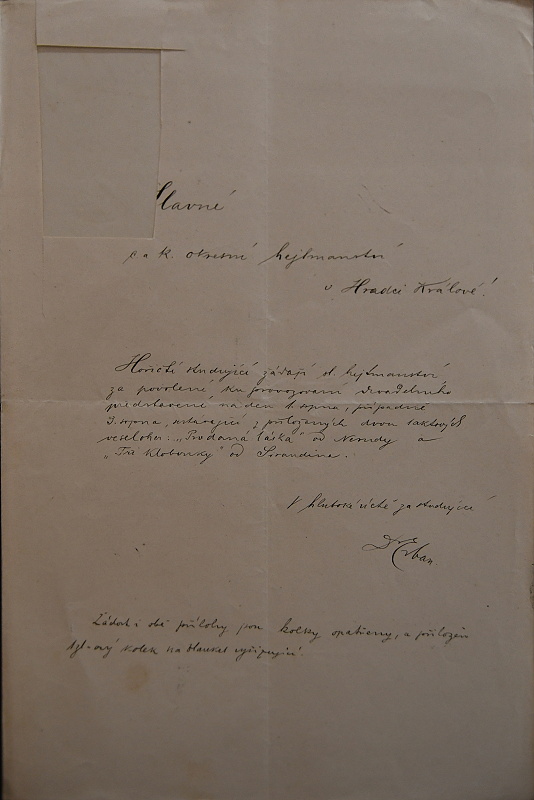 Slavné
c a k. okresní hejtmanství
v Hradci Králové!
Hořičtí studující žádají sl. hejtmanství
za povolení ku provozování divadelního
představení na den 1. srpna, případně
3. srpna, sestávající z přiložených dvou 1aktových
veseloher: „Prodaná láska" od Nerudy a
„Tři klobouky" od
V hluboké úctě za studující
Dr Erban
Žádost i obě přílohy jsou kolky opatřeny, a přiložen
kolek na vyřizující.